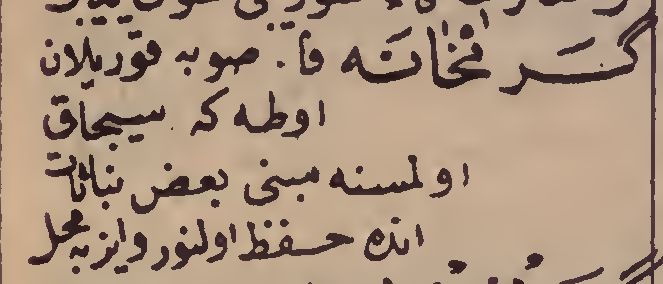 گرمخانه فا. صوبه قوریلان
اوطه که سیجاق
اولمسنه مبنی بعض نباتات
انده حفظ اولنور وایزبه محل